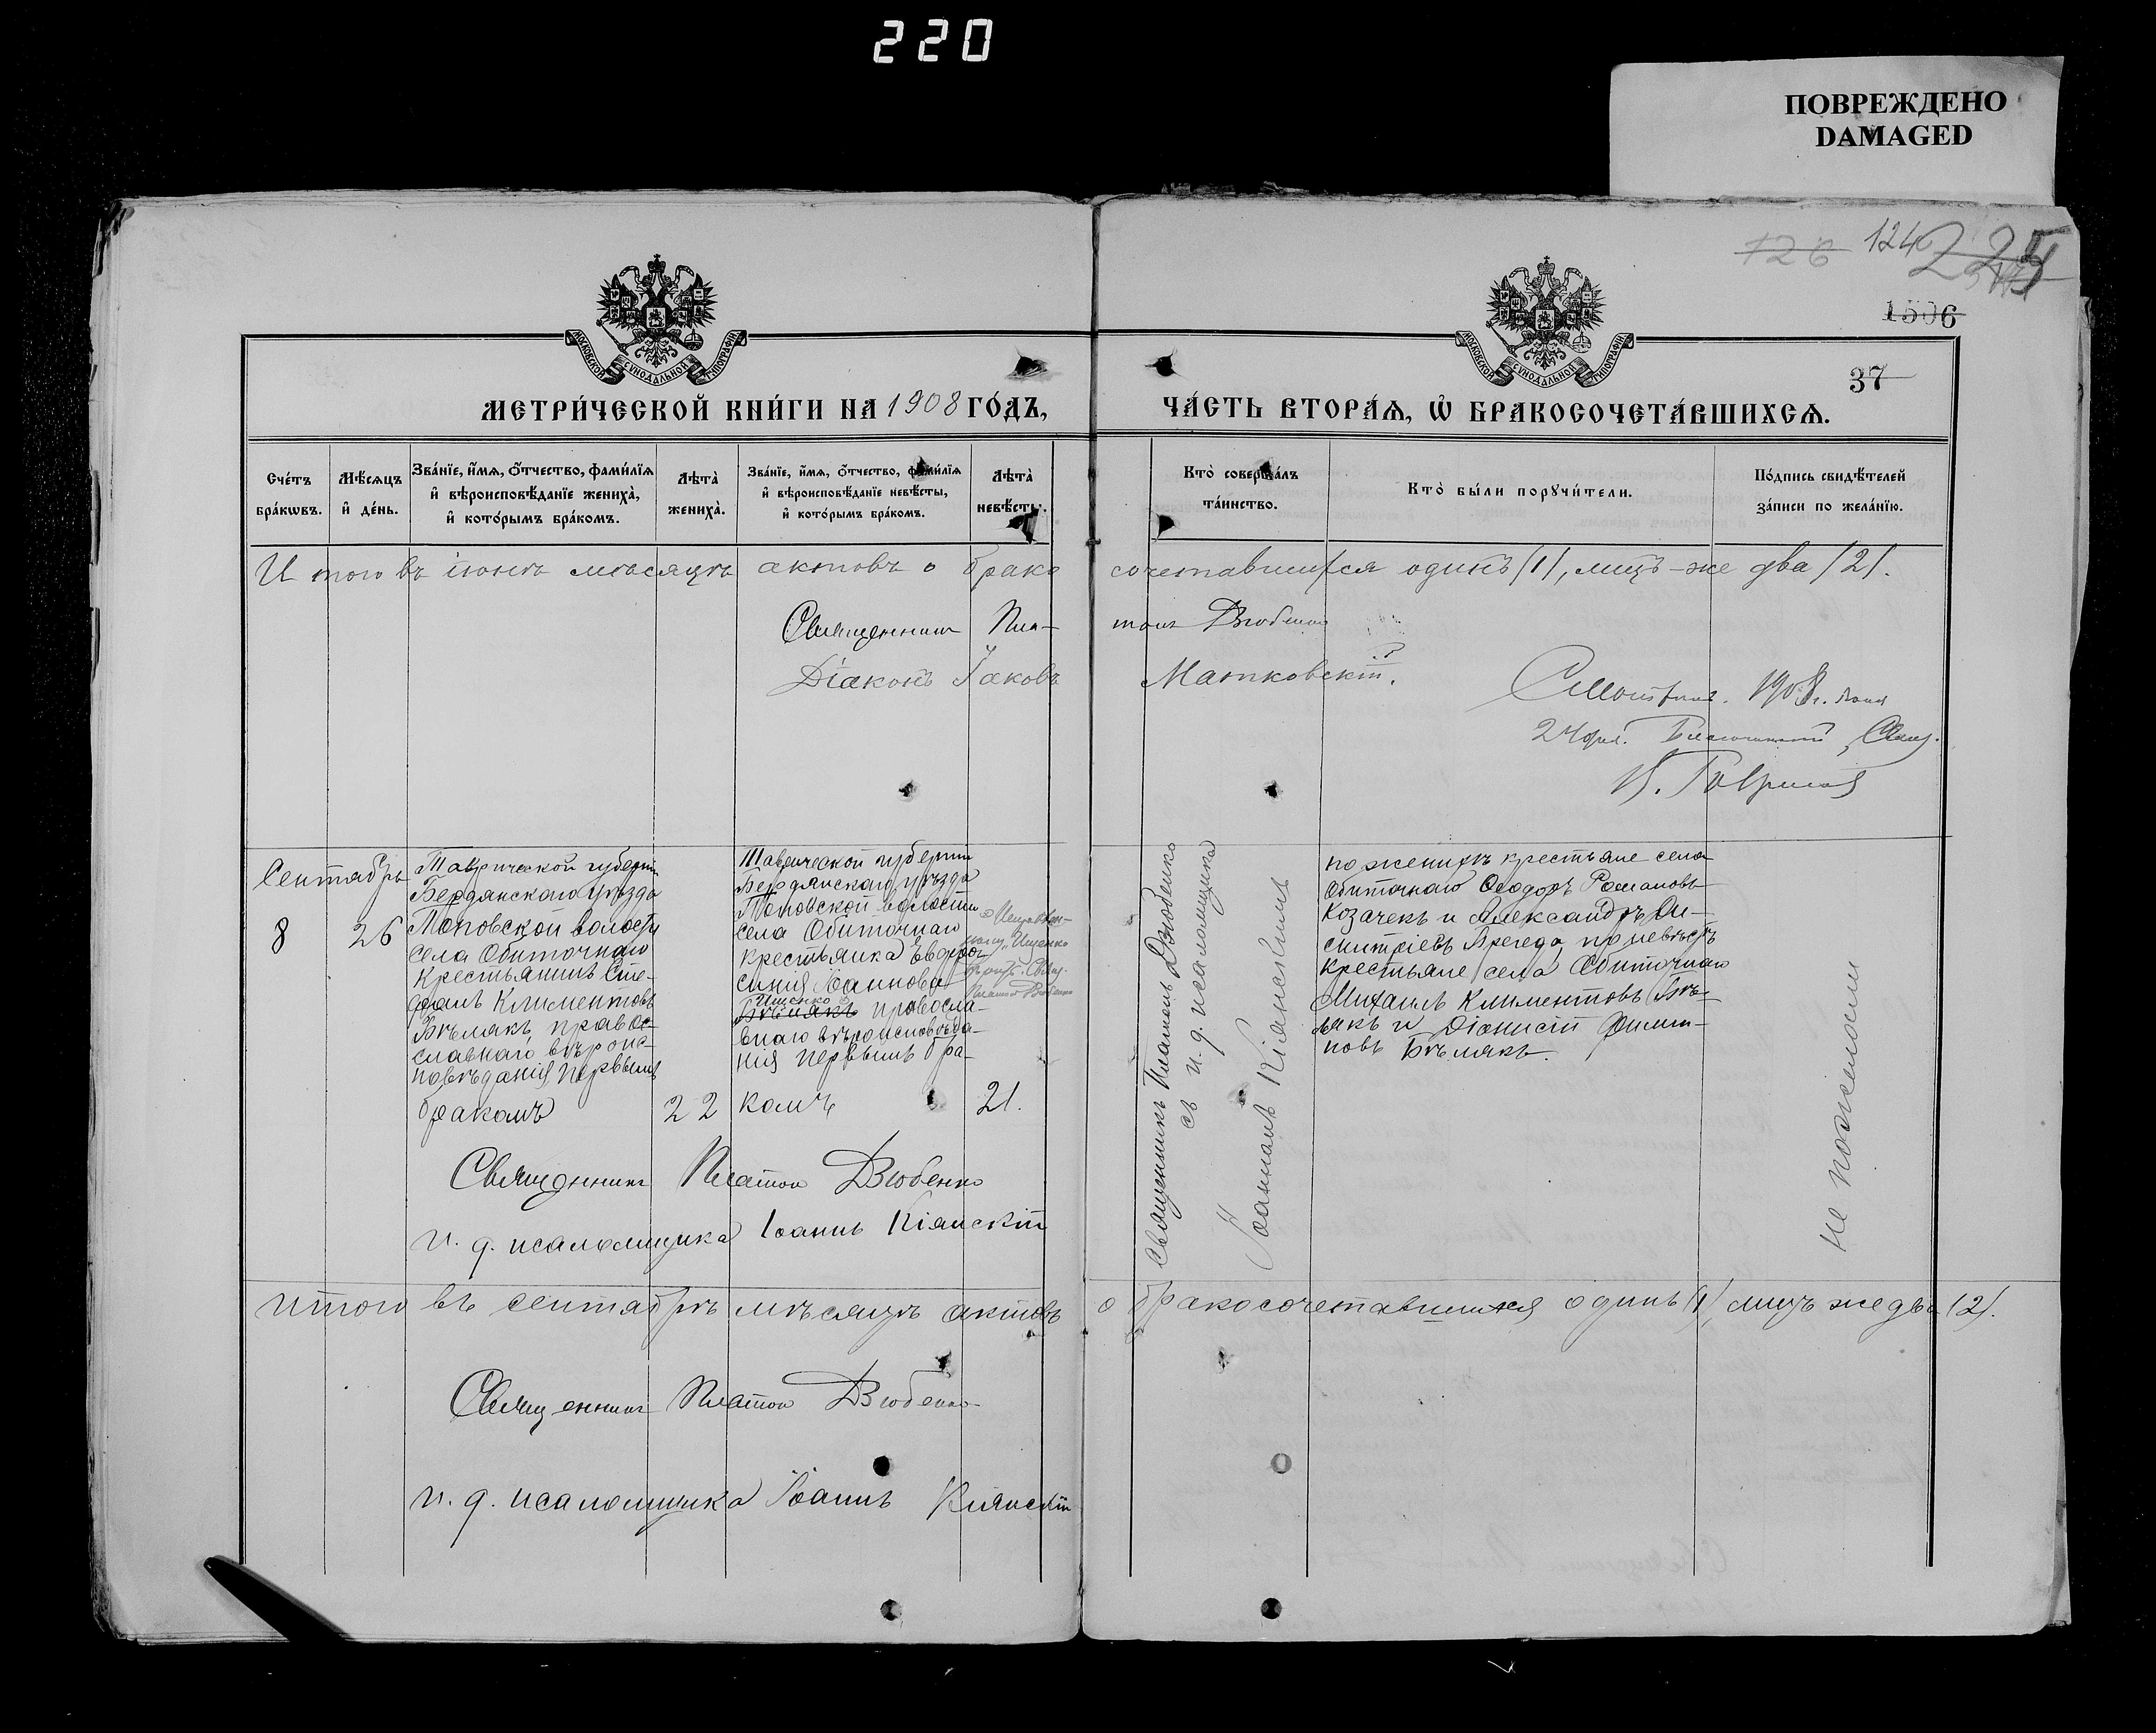 220
ПОВРЕЖДЕНО
DAMAGED
126 124 225
1506
37
МОСКОВСКОЙ СѴНОДАЛЬНОЙ ТИПОГРАФІИ
МОСКОВСКОЙ СѴНОДАЛЬНОЙ ТИПОГРАФІИ
МЕТРИ́ЧЕСКОЙ КНИ́ГИ НА 1908 ГО́ДЪ,
ЧА́СТЬ ВТОРА́Ѧ, Ѡ҆ БРАКОСОЧЕТА́ВШИХСѦ.
Сче́тъ
бра́кѡвъ.
Мѣ́сѧцъ
и҆ де́нь.
Зва́нїе, и҆́мѧ, ѻ҆́тчество, фами́лїѧ
и҆ вѣроисповѣ́данїе жениха̀,
и҆ кото́рымъ бра́комъ.
Лѣта̀
жениха̀.
Зва́нїе, и҆́мѧ, ѻ҆́тчество, фами́лїѧ
и҆ вѣроисповѣ́данїе невѣ́сты,
и҆ кото́рымъ бра́комъ.
Лѣта̀
невѣ́сты.
Кто̀ соверша́лъ
та́инство.
Кто̀ бы́ли порꙋчи́тели.
По́дпись свидѣ́телей
за́писи по жела́нїю.
Итого въ іюнѣ мѣсяцѣ актовъ о брако
сочетавшихся одинъ (1), лицъ-же два (2).
Священникъ Пла-
тонъ Дзюбенко
Діаконъ Іаковъ
Матковскій.
Смотрѣлъ. 1908 г.
24 дня. Благочинный, Свящ.
Сентябрь
8
26
Таврической губерніи
Бердянскаго уѣзда
Поповской волости
села Обиточнаго
крестьянинъ Сте-
фанъ Климентовъ
Бѣлякъ, право-
славнаго вѣроис-
повѣданія, первымъ
бракомъ
22
Таврической губерніи
Бердянскаго уѣзда
Поповской волости
села Обиточнаго
крестьянка Евфро-
синія Іоаннова
Ищенко
Бѣлякъ правосла-
внаго вѣроисповѣда-
нія первымъ бра-
комъ
Ищенко
Свящ.
Платонъ Дзюбенко
21.
Священникъ Платонъ Дзюбенко
съ и. д. псаломщика
Іоанномъ Кіянскимъ
по женихѣ крестьяне села
Обиточнаго Ѳеодоръ Романовъ
Козаченъ и Александръ Ди-
митріевъ Прегеда, по невѣстѣ
крестьяне села Обиточнаго
Михаилъ Климентовъ Бѣ-
лякъ и Діонисій Филип-
повъ Бѣлякъ.
Не пожелали
Священникъ Платонъ Дзюбенко
и. д. псаломщика Іоаннъ Кіянскій
Итого въ сентябрѣ мѣсяцѣ актовъ
о бракосочетавшихся одинъ (1), лицъ же два (2).
Священникъ Платонъ Дзюбенко
и. д. псаломщика Іоаннъ Кіянскій